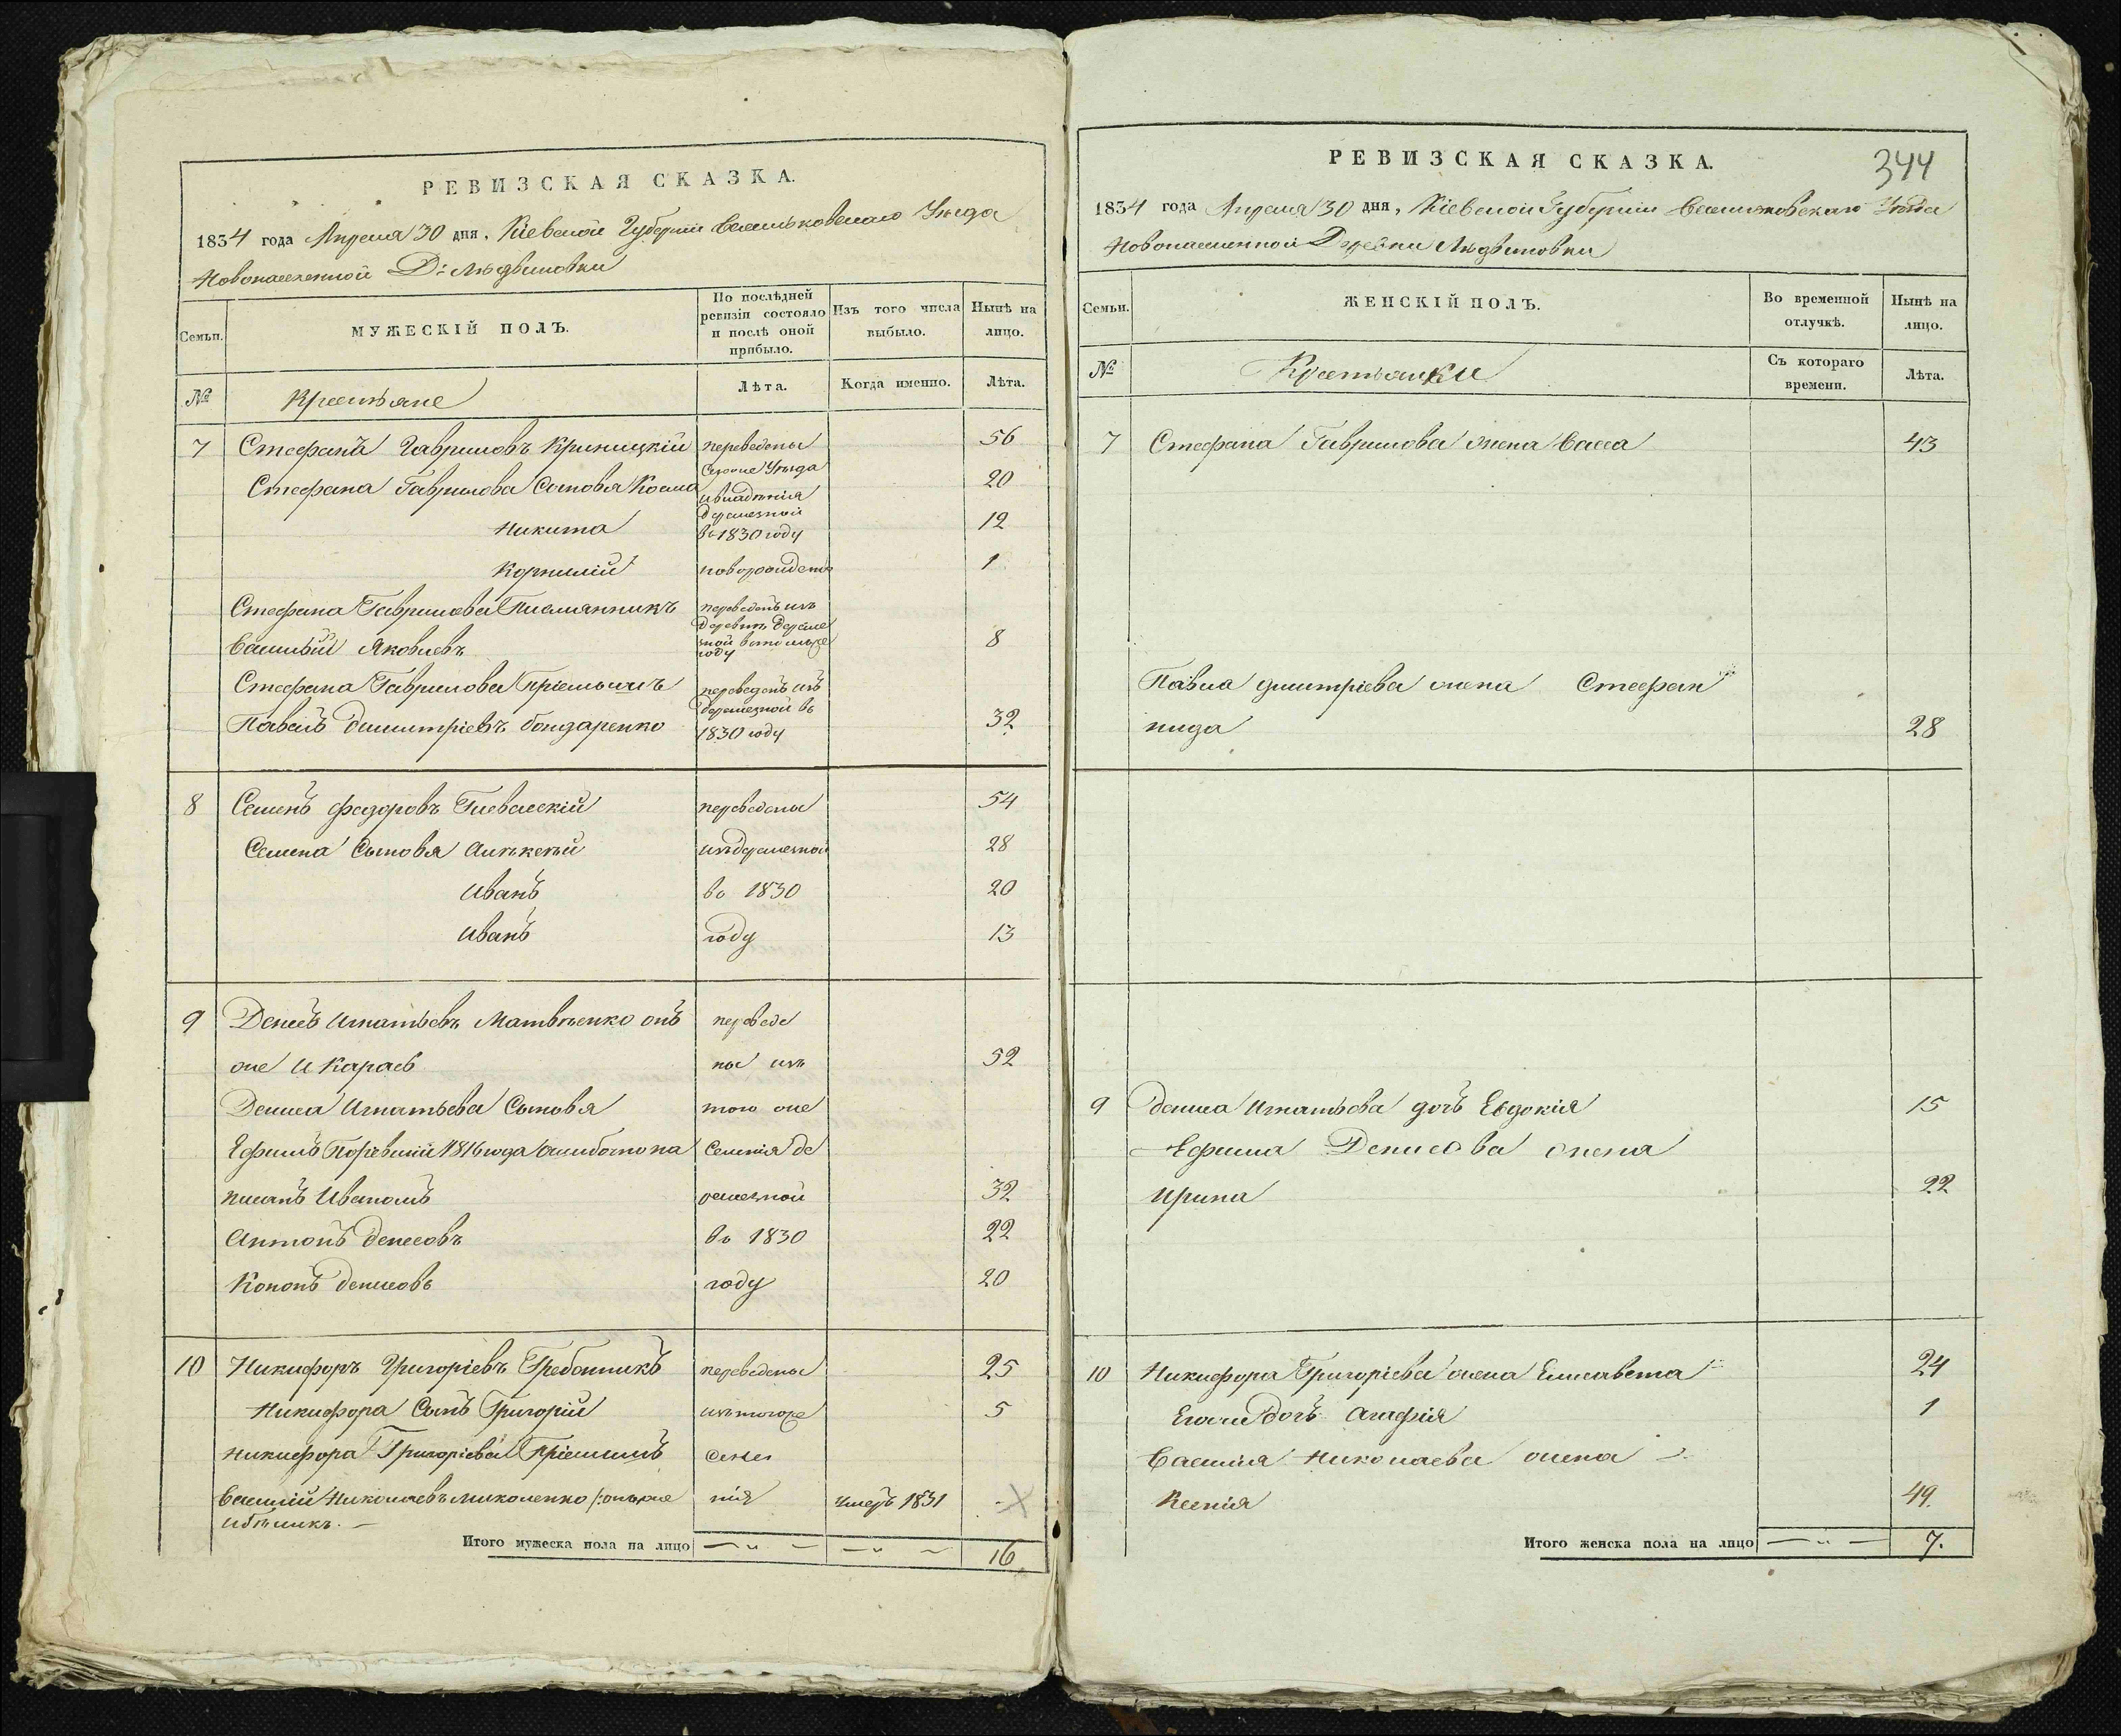 РЕВИЗСКАЯ СКАЗКА.
1834 года Апреля 30 дня, Кіевской Губерніи Васильковскаго Уѣзда
Новонаселенной Д: Людвиновки
Семьи.
МУЖЕСКІЙ ПОЛЪ.
По послѣдней ревизіи состояло и послѣ оной прибыло.
Изъ того числа выбыло.
Нынѣ на лицо.
№
Крестьяне
Лѣта.
Когда именно.
Лѣта.
7 Стефанъ Гавриловъ Криницкій переведены 56
Стефана Гаврилова Сыновья Косма Сегоже Уѣзда 20
ивладѣнія
Никита 12
во 1830 году
Корнилій новорожденъ 1
Стефана Гаврилова Племянникъ переведенъ изъ
Василій Яковлевъ 8
году
Стефана Гаврилова Пріемышъ переведенъ изъ
Павелъ Димитріевъ бондаренко 1830 году 32
8 Семенъ Федоровъ переведены 54
Семена Сыновья Алѣксѣй 28
Иванъ во 1830 20
Иванъ году 13
9 Денисъ Игнатьевъ Матвѣенко онъ переведе
же и Карась ны изъ 52
Дениса Игнатьева Сыновья того же
Ефимъ 1816 года ошибочно на Селенія Де
писанъ Иваномъ 32
Антонъ Денисовъ во 1830 22
Кононъ Денисовъ году 20
10 Никифоръ Григоріевъ Гребенникъ переведены 25
Никифора Сынъ Григорій изтогоже 5
Никифора Григоріева Пріемышъ Селе
Василій Николаевъ Миколенко нія умеръ 1831
Итого мужеска пола на лицо 16
РЕВИЗСКАЯ СКАЗКА.
344
1834 года Апреля 30 дня, Кіевской Губерніи Васильковскаго Уѣзда
Новонаселенной Деревни Людвиновки
Семьи.
ЖЕНСКІЙ ПОЛЪ.
Во временной отлучкѣ.
Нынѣ на лицо.
№
Крестьянки
Съ котораго времени.
Лѣта.
7 Стефана Гаврилова жена Васса 43
Павла Димитріева жена Стефан
нида 28
9 Дениса Игнатьева дочь Евдокія 15
Ефима Денисова жена
Ирина 22
10 Никифора Григоріева жена Елисавета 24
Егоже дочь Агафія 1
Василія Николаева жена
Ксенія 49.
Итого женска пола на лицо 7.